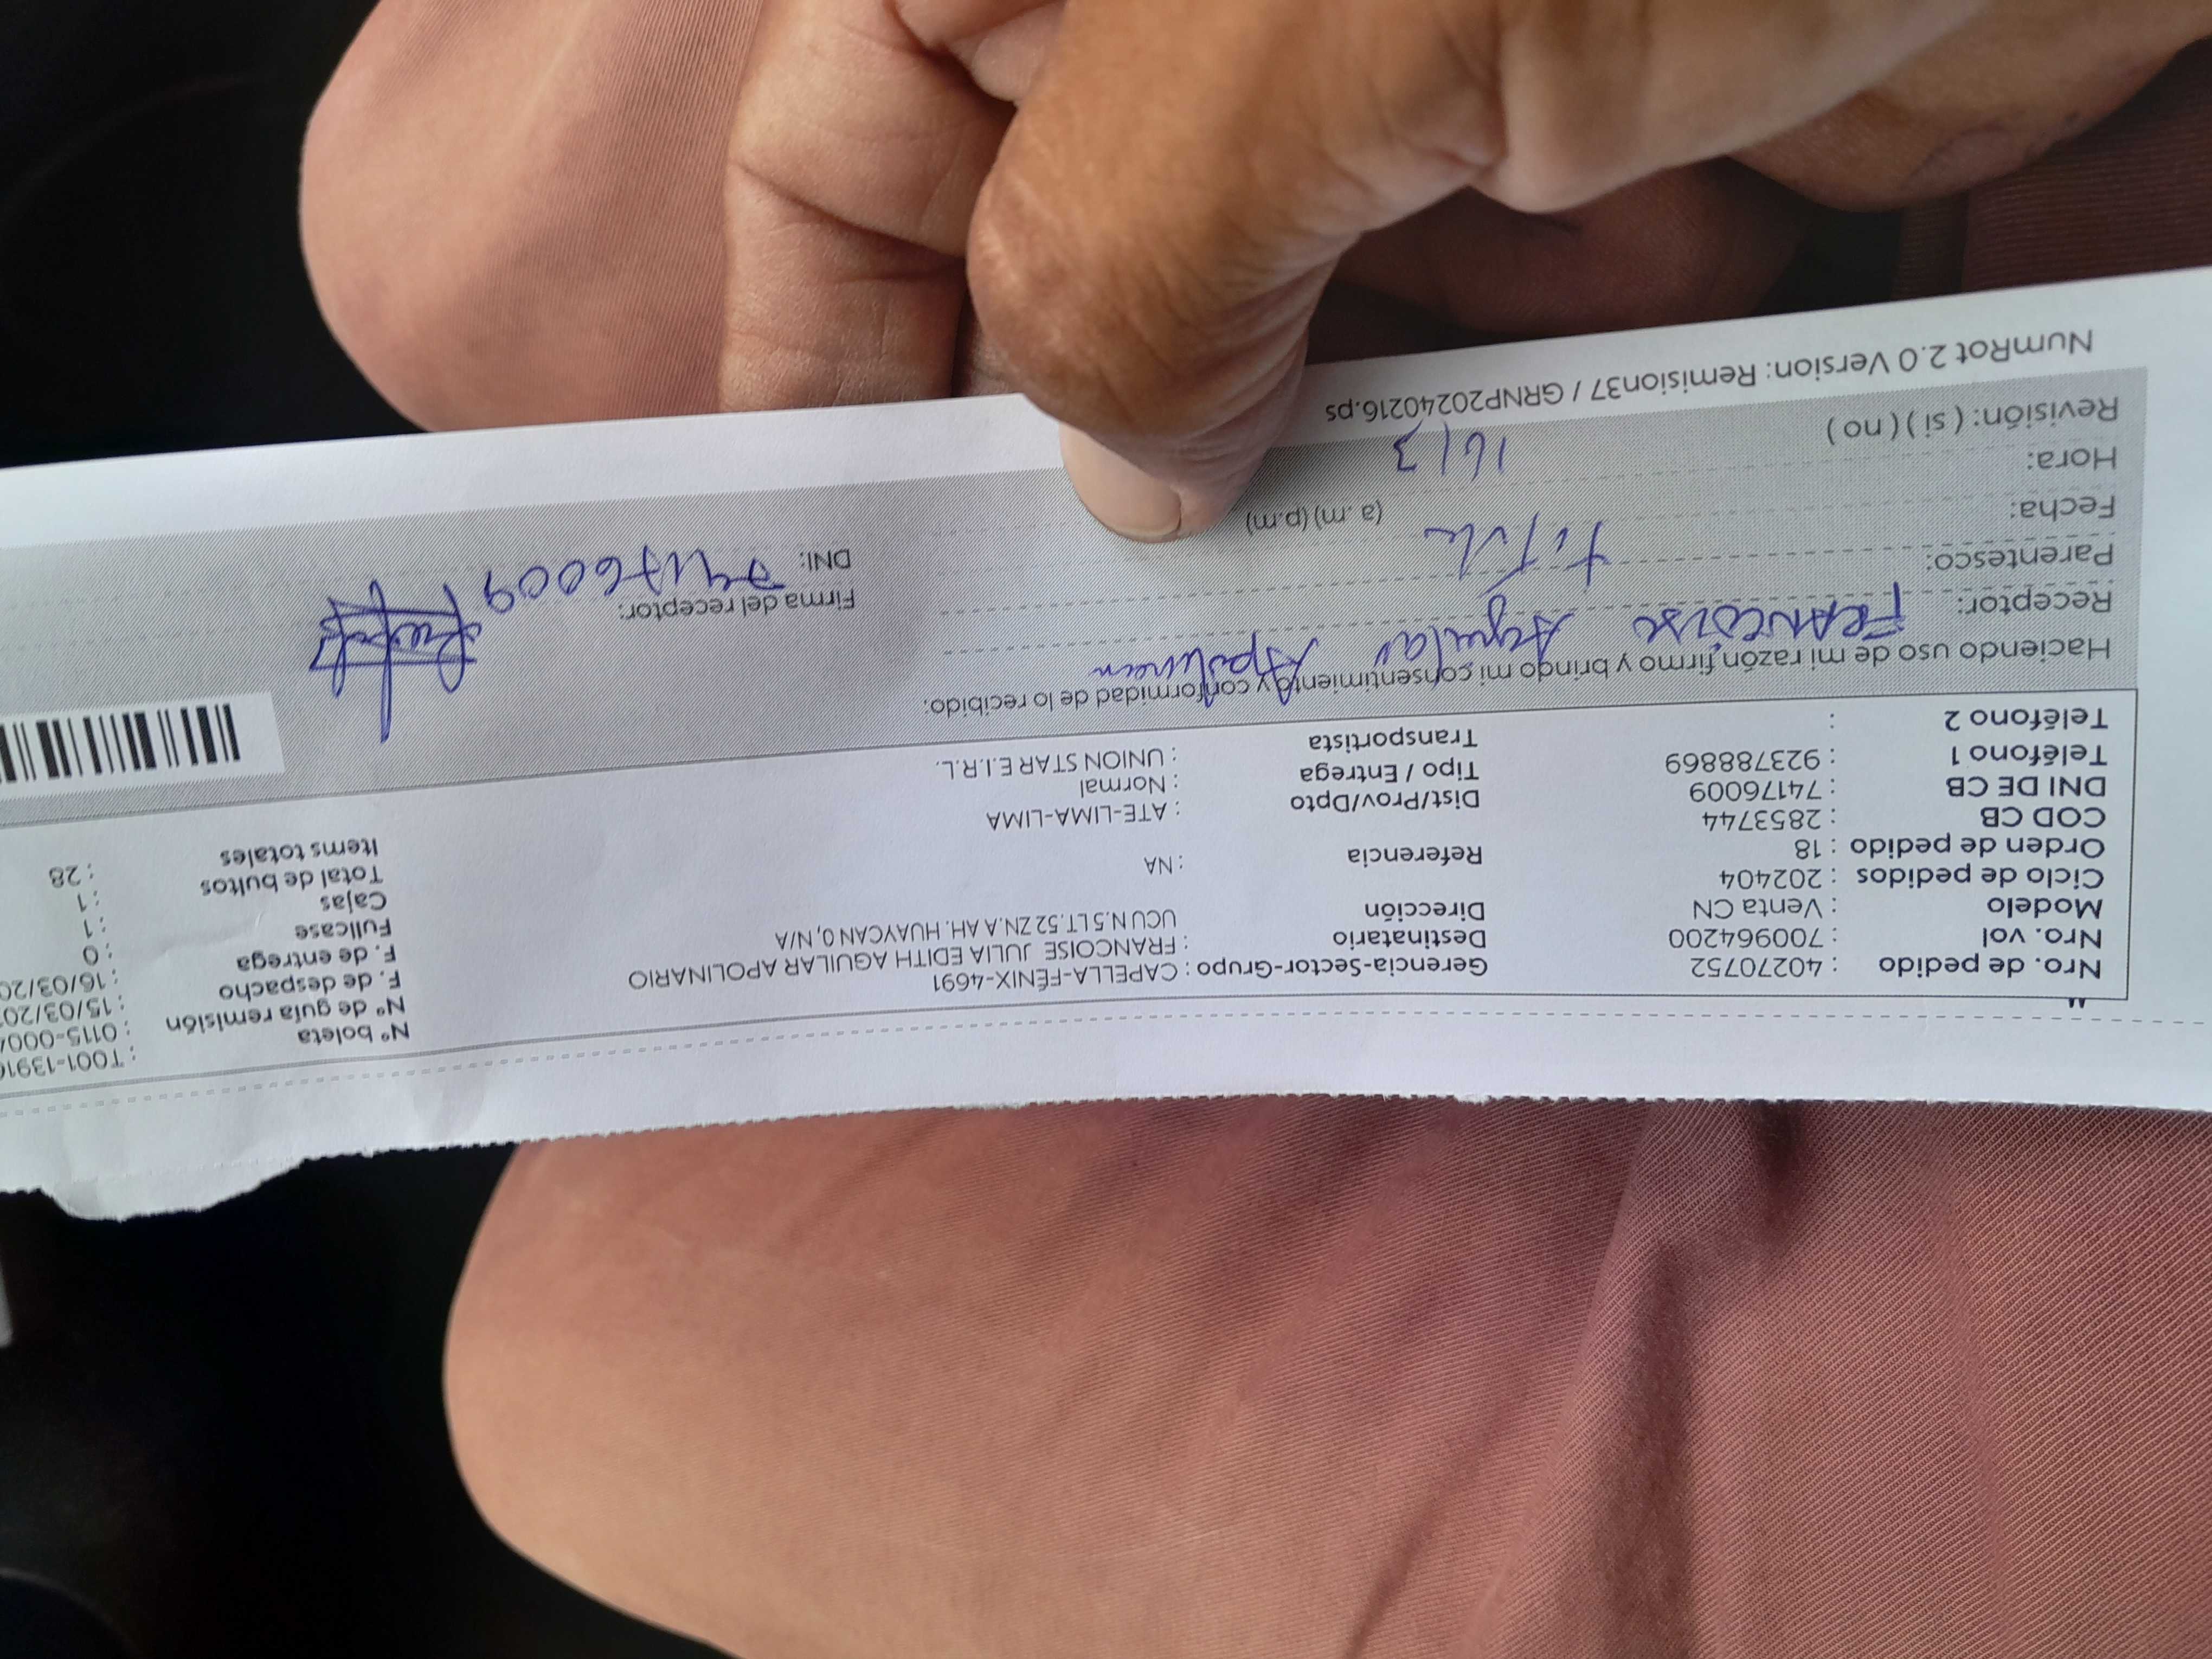 Nro. de pedido : 40270752
Nro. vol : 700964200
Modelo : Venta CN
Ciclo de pedidos : 202404
Orden de pedido : 18
COD CB : 2853744
DNI DE CB : 74176009
Teléfono 1 : 923788869
Teléfono 2 :
Gerencia-Sector-Grupo : CAPELLA-FÉNIX-4691
Destinatario : FRANCOISE JULIA EDITH AGUILAR APOLINARIO
Dirección UCU N.5 LT. 52 ZN.A AH. HUAYCAN 0, N/A
Referencia : NA
Dist/Prov/Dpto : ATE-LIMA-LIMA
Tipo / Entrega : Normal
Transportista : UNION STAR E.I.R.L.
Nº boleta : T001-1391
Nº de guía remisión : 0115-000
F. de despacho : 15/03/20
F. de entrega : 16/03/20
Fullcase : 0
Cajas : 1
Total de bultos : 1
Items totales : 28
Haciendo uso de mi razón, firmo y brindo mi consentimiento y conformidad de lo recibido:
Receptor: FRANCOISE Aguilar
Parentesco:
Fecha:
Hora: (a.m) (p.m)
16/3
Revisión: ( si ) ( no )
Firma del receptor:
DNI: 74176009
NumRot 2.0 Version: Remision37 / GRNP20240216.ps